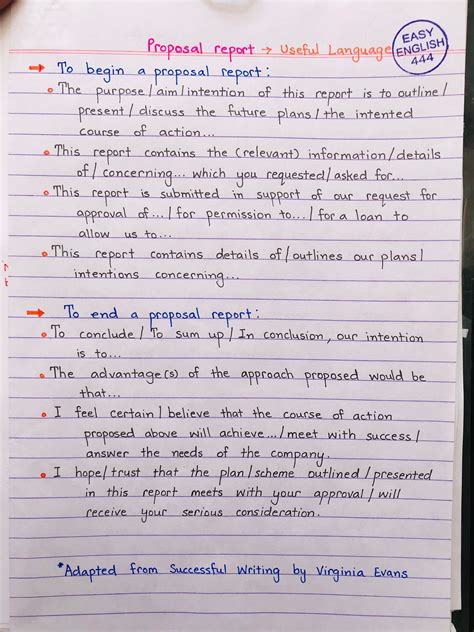 Proposal report → Useful Language
EASY
ENGLISH
444
→ To begin a proposal report:
• The purpose/aim/intention of this report is to outline/
present/discuss the future plans/the intented
course of action...
• This report contains the (relevant) information/details
of/concerning... which you requested/asked for...
• This report is submitted in support of our request for
approval of.../for permission to.../for a loan to
allow us to...
• This report contains details of/outlines our plans/
intentions concerning...
→ To end a proposal report:
• To conclude/To sum up/In conclusion, our intention
is to...
• The advantage(s) of the approach proposed would be
that...
• I feel certain/believe that the course of action
proposed above will achieve.../meet with success/
answer the needs of the company.
• I hope/trust that the plan/scheme outlined/presented
in this report meets with your approval/will
receive your serious consideration.
*Adapted from Successful Writing by Virginia Evans